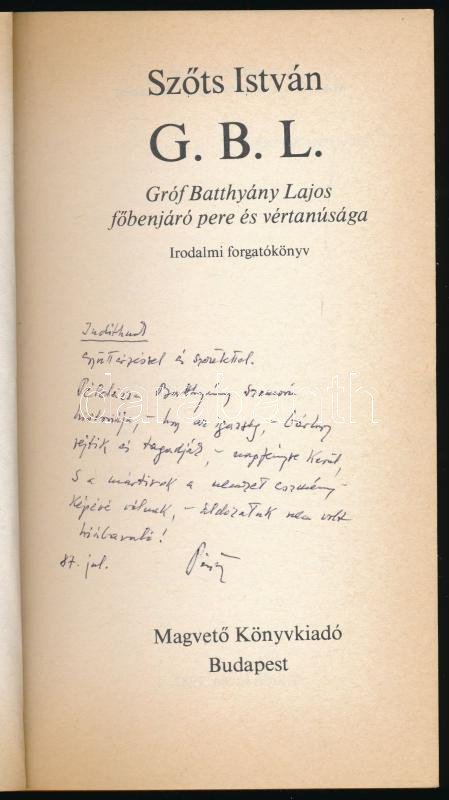 Szőts István
G. B. L.
Gróf Batthyány Lajos
főbenjáró pere és vértanúsága
Irodalmi forgatókönyv
Judithnak
együttérzéssel és szeretettel.
Példázza Batthyány szomorú
históriája, – hogy az igazság, – bárhogy
rejtik és tagadják, – napfényre kerül,
s a mártírok a nemzet eszmény-
képévé válnak, – áldozatuk nem volt
hiábavaló!
87. jul.
Magvető Könyvkiadó
Budapest